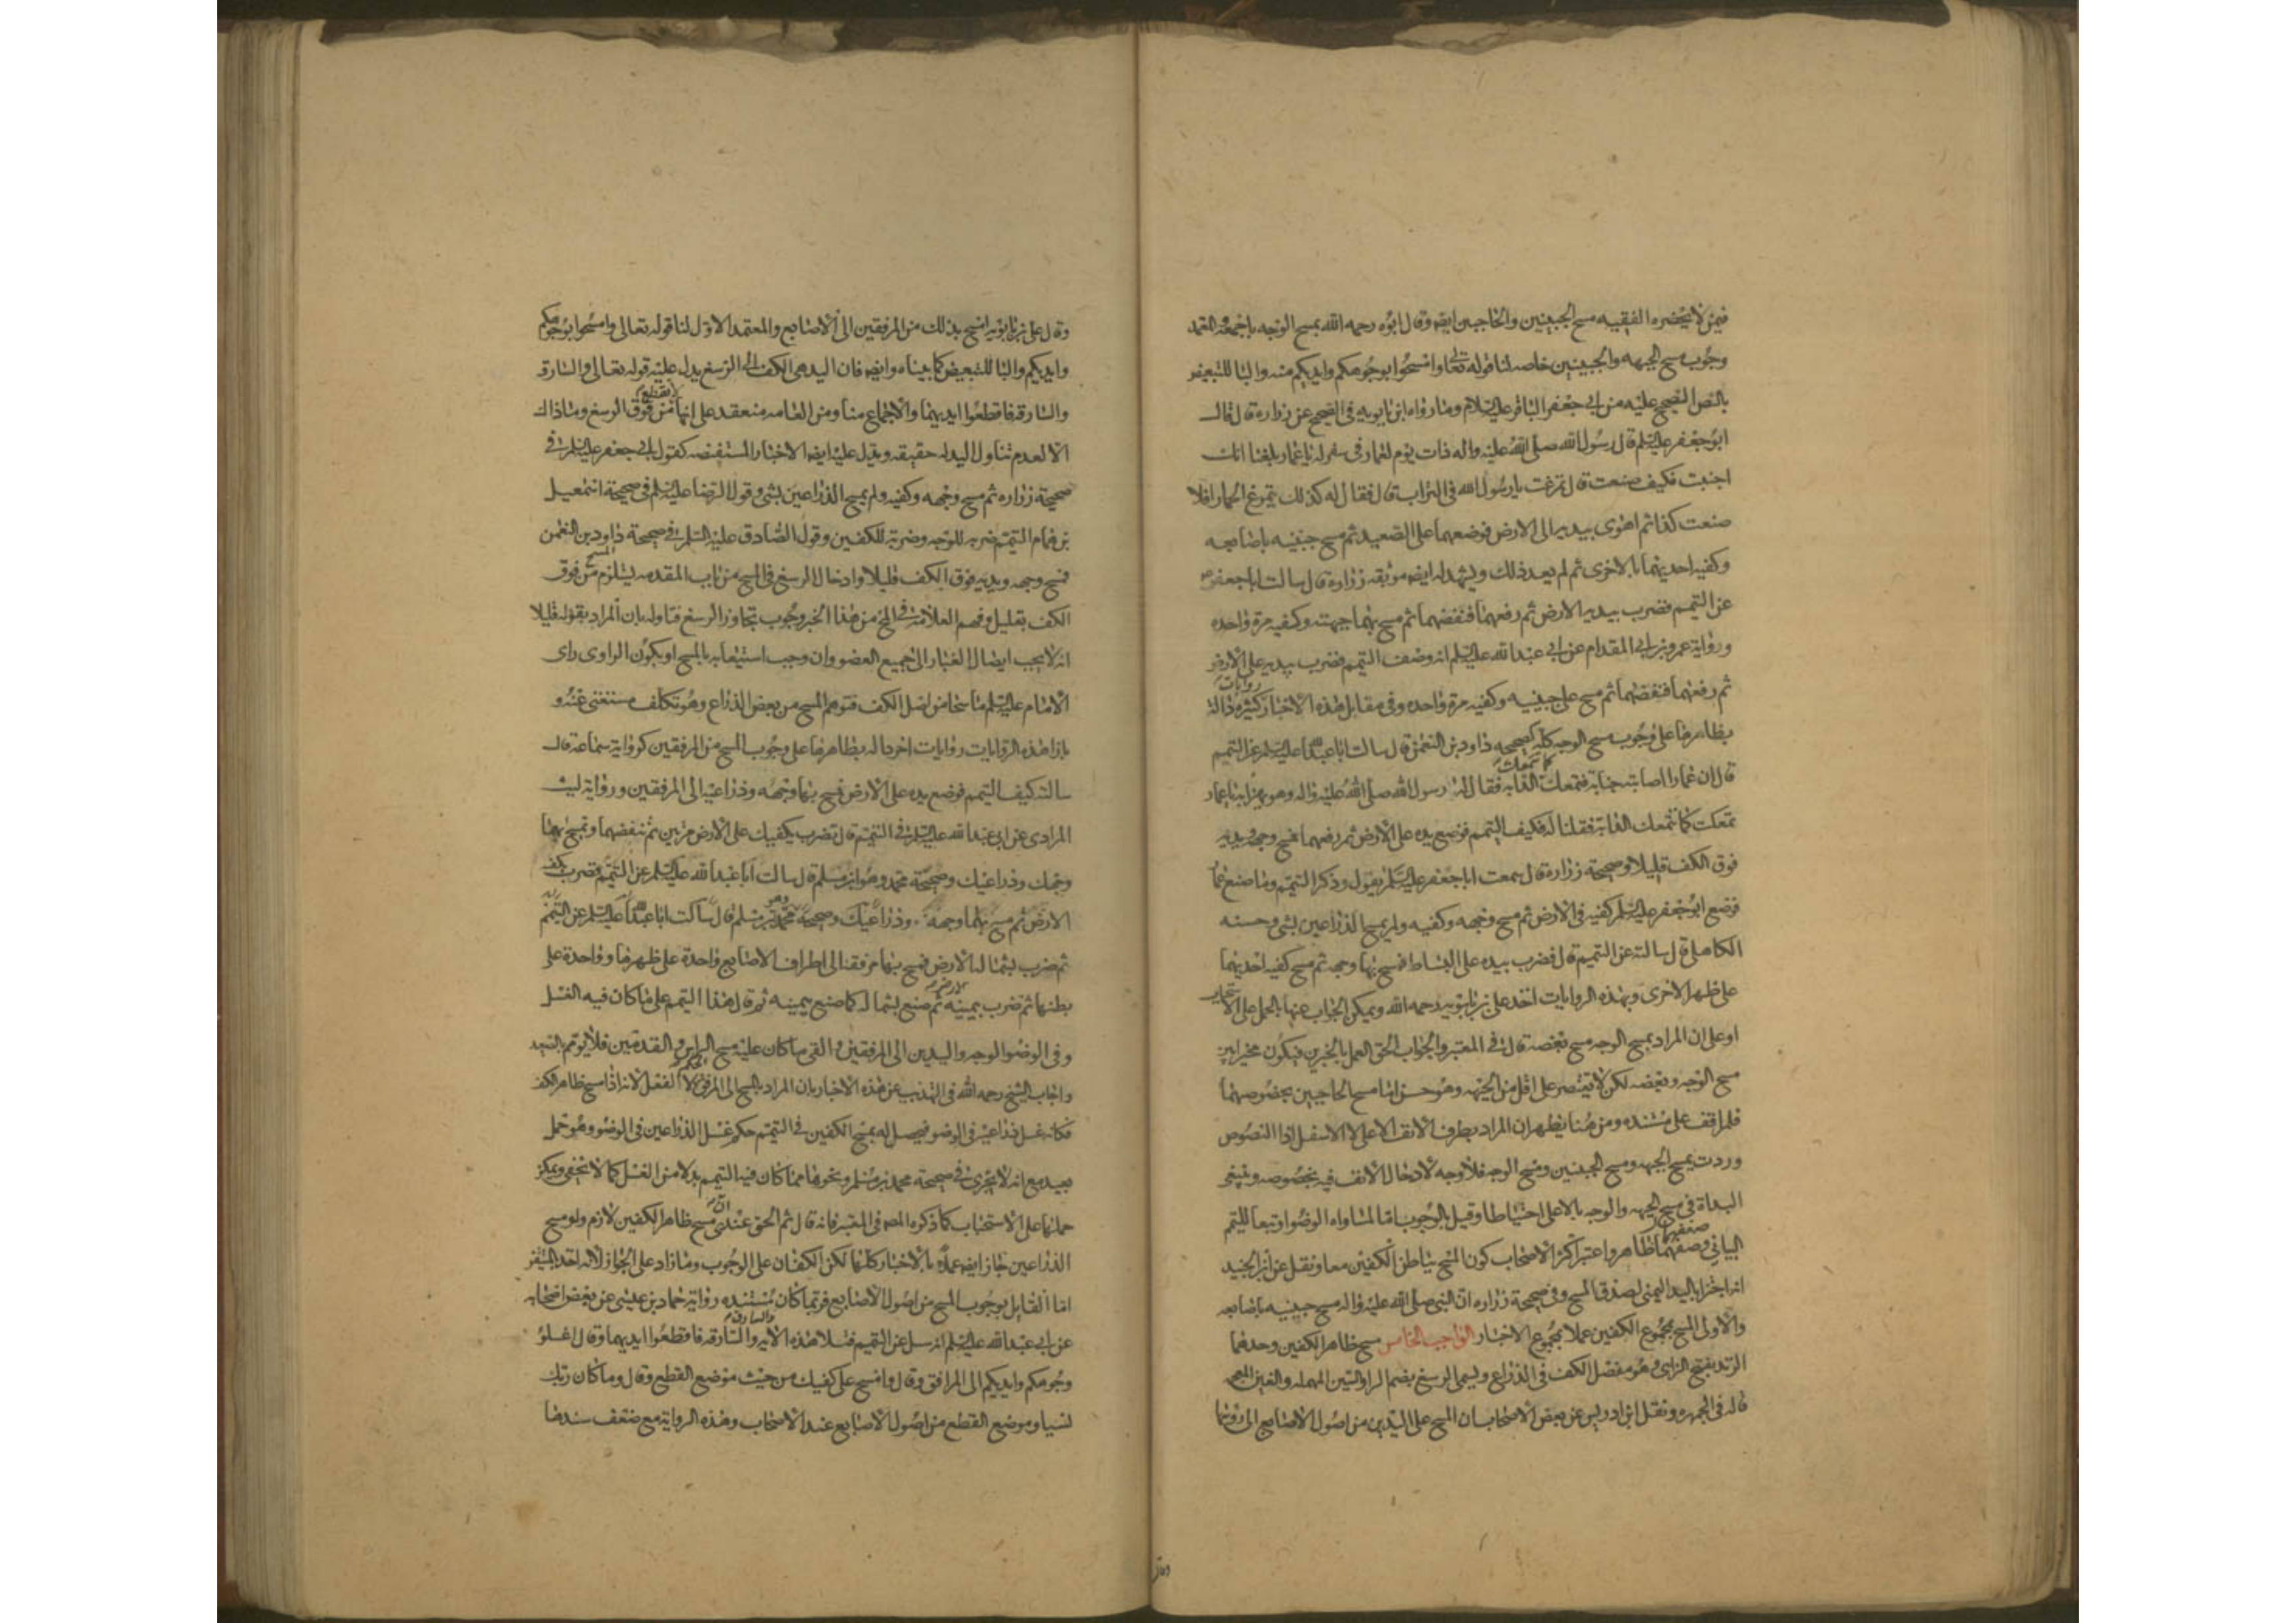 فيمن لا يحضره الفقيه مسح الجبينين والحاجبين ايضا وقال ابوه رحمه الله يمسح الوجه باجمعه المعتمد
وجوب مسح الجبهه والجبينين خاصه لنا قوله تعالى وامسحوا بوجوهكم وايديكم منه والبا للتبعيض
بالنص الصحيح عليه من ابي جعفر الباقر عليه السلام وما رواه ابن بابويه في الصحيح عن زراره قال قال
ابو جعفر عليه السلم قال رسول الله صلى الله عليه واله ذات يوم لعمار في سفر له يا عمار بلغنا انك
اجنبت فكيف صنعت قال تمرغت يا رسول الله في التراب قال فقال له كذلك يتمرغ الحمار افلا
صنعت كذا ثم اهوى بيديه الى الارض فوضعهما على الصعيد ثم مسح جبينيه باصابعه
وكفيه احديهما بالاخرى ثم لم يعد ذلك ويشهد له ايضا موثقه زراره قال سالت ابا جعفر
عن التيمم فضرب بيديه الارض ثم رفعهما فنفضهما ثم مسح بهما جبهته وكفيه مرة واحده
ورواية عمرو بن ابي المقدام عن ابي عبد الله عليه السلم انه وصف التيمم فضرب بيديه على الارض
ثم رفعهما فنفضهما ثم مسح على جبينيه وكفيه مرة واحده وفي مقابل هذه الاخبار روايات كثيرة دالة
بظاهرها على وجوب مسح الوجه كله كصحيحه داود بن النعمن قال سالت ابا عبد الله عليه السلم عن التيمم
قال ان عمارا اصابته جنابة فتمعك كما تتمعك الدابه فقال له رسول الله صلى الله عليه واله وهو يهزا به يا عمار
تمعكت كما تتمعك الدابة فقلنا له فكيف التيمم فوضع يده على الارض ثم رفعهما فمسح وجهه ويديه
فوق الكف قليلا وصحيحة زرارة قال سمعت ابا جعفر عليه السلم يقول وذكر التيمم وما صنع عمار
فوضع ابو جعفر عليه السلم كفيه في الارض ثم مسح وجهه وكفيه ولم يمسح الذراعين بشي وحسنه
الكاهلي قال سالته عن التيمم قال فضرب بيده على البساط فمسح بها وجهه ثم مسح كفيه احديهما
على ظهر الاخرى وبهذه الروايات اخذ علي بن بابويه رحمه الله ويمكن الجواب عنها بالحمل على الاستحباب
او على ان المراد بمسح الوجه مسح بعضه قال في المعتبر والجواب الحق العمل بالخبرين فيكون مخيرا بين
مسح الوجه وبعضه لكن لا يقتصر على اقل من الجبهه وهو حسن اما مسح الحاجبين بخصوصهما
فلم اقف على مستنده ومن هنا يظهر ان المراد بطرف الانف الاعلى لا الاسفل اذا النصوص
وردت بمسح الجبهه ومسح الجبينين ومسح الوجه فلا وجه لادخال الانف فيه بخصوصه وينبغي
البداة في مسح الجبهه والوجه بالاعلى احتياطا وقيل بالوجوب اما لمساواه الوضوا وتبعا للتيمم
البياني وضعفهما ظاهر واعتبر اكثر الاصحاب كون المسح بباطن الكفين معا ونقل عن ابن الجنيد
انه اجتزا باليد اليمنى لصدق المسح وفي صحيحة زراره ان النبي صلى الله عليه واله مسح جبينيه باصابعه
والاولى المسح بمجموع الكفين عملا بمجموع الاخبار الواجب الخامس مسح ظاهر الكفين وحدهما
الزند بفتح الزاي وهو مفصل الكف في الذراع ويسمى الرسغ بضم الرا والسين المهمله والغين المعجمه
قاله في الجمهره ونقل ابن ادريس عن بعض الاصحاب ان المسح على اليدين من اصول الاصابع الى رؤسها
وقال
وقال علي بن بابويه امسح يديك من المرفقين الى الاصابع والمعتمد الاول لنا قوله تعالى وامسحوا بوجوهكم
وايديكم والبا للتبعيض كما بيناه وايضا فان اليد هي الكف الى الرسغ يدل عليه قوله تعالى والسارق
والسارقة فاقطعوا ايديهما والاجماع منا ومن العامه منعقد على انها لا تقطع من فوق الرسغ وما ذاك
الا لعدم تناول اليد له حقيقه ويدل عليه ايضا الاخبار المستفيضه كقول ابي جعفر عليه السلم في
صحيحة زراره ثم مسح وجهه وكفيه ولم يمسح الذراعين بشي وقول الرضا عليه السلم في صحيحة اسمعيل
بن همام التيمم ضربه للوجه وضربة للكفين وقول الصادق عليه السلم في صحيحة داود بن النعمن
فمسح وجهه ويديه فوق الكف قليلا وادخال الرسغ في المسح من باب المقدمه يستلزم المسح من فوق
الكف بقليل وفهم العلامة في المنتهى من هذا الخبر وجوب تجاوز الرسغ فتاوله بان المراد بقوله قليلا
انه لا يجب ايصال الغبار الى جميع العضو وان وجب استيعابه بالمسح او يكون الراوي راى
الامام عليه السلم ماسحا من اصل الكف فتوهم المسح من بعض الذراع وهو تكلف مستغنى عنه و
بازا هذه الروايات روايات اخر دالة بظاهرها على وجوب المسح من المرفقين كرواية سماعة قال
سالته كيف التيمم فوضع يده على الارض فمسح بها وجهه وذراعيه الى المرفقين ورواية ليث
المرادي عن ابي عبد الله عليه السلم في التيمم قال تضرب بكفيك على الارض مرتين ثم تنفضهما وتمسح بهما
وجهك وذراعيك وصحيحة محمد وهو ابن مسلم قال سالت ابا عبد الله عليه السلم عن التيمم فضرب بكفيه
الارض ثم مسح بهما وجهه وذراعيك وصحيحة محمد وهو بن مسلم قال سالت ابا عبد الله عليه السلم عن التيمم
ثم ضرب بشماله الارض فمسح بها مرفقه الى اطراف الاصابع واحدة على ظهرها وواحدة على
بطنها ثم ضرب بيمينه الارض ثم صنع بشماله كما صنع بيمينه ثم قال هذا التيمم على ما كان فيه الغسل
وفي الوضوا الوجه واليدين الى المرفقين والقى ما كان عليه مسح الراس والقدمين فلا يؤمم بالصعيد
واجاب الشيخ رحمه الله في التهذيب عن هذه الاخبار بان المراد بالمسح الى المرفق الحكم لا الفعل لانه اذا مسح ظاهر الكف
فكانه غسل ذراعيه في الوضو فيحصل له بمسح الكفين في التيمم حكم غسل الذراعين في الوضو وهو حمل
بعيد مع انه لا يجري في صحيحة محمد بن مسلم ونحوها مما كان فيه التيمم بدلا من الغسل كما لا يخفى ويمكن
حملها على الاستحباب كما ذكره المصـ في المعتبر فانه قال ثم الحق عندي ان مسح ظاهر الكفين لازم ولو مسح
الذراعين جاز ايضا عملا بالاخبار كلها لكن الكفان على الوجوب وما زاد على الجواز لانه اخذ بالمتيقن
اما القايل بوجوب المسح من اصول الاصابع فربما كان مستنده رواية حماد بن عيسى عن بعض اصحابه
عن ابي عبد الله عليه السلم انه سئل عن التيمم فتلا هذه الايه والسارق والسارقة فاقطعوا ايديهما وقال اغسلوا
وجوهكم وايديكم الى المرافق وقال وامسح على كفيك من حيث موضع القطع وقال وما كان ربك
نسيا وموضع القطع من اصول الاصابع عند الاصحاب وهذه الرواية مع ضعف سندها